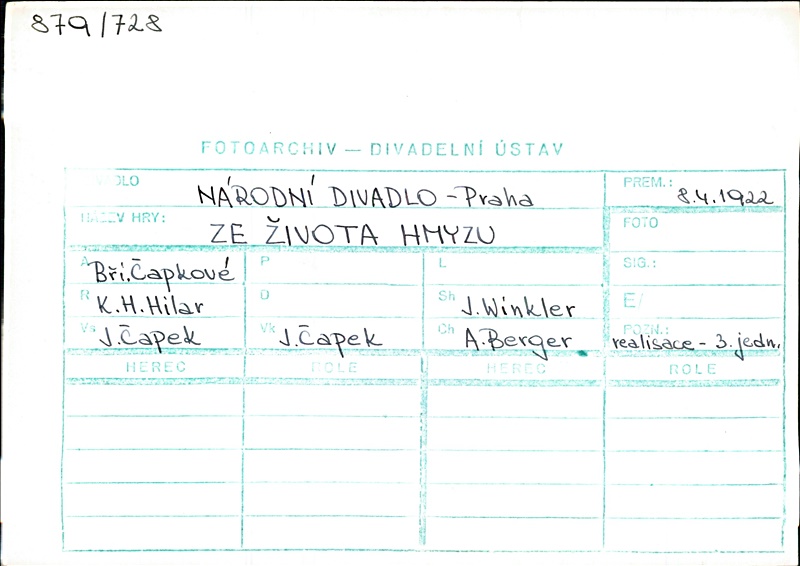 879/728
FOTOARCHIV — DIVADELNÍ ÚSTAV
NÁRODNÍ DIVADLO - Praha
PREM.: 8.4.1922
NÁZEV HRY: ZE ŽIVOTA HMYZU
FOTO
A Bři. Čapkové P L SIG.:
R K.H.Hilar D Sh J.Winkler E/
Vs J.Čapek Vk J.Čapek Ch A.Berger POZN.: realisace - 3. jedn.
HEREC ROLE HEREC ROLE